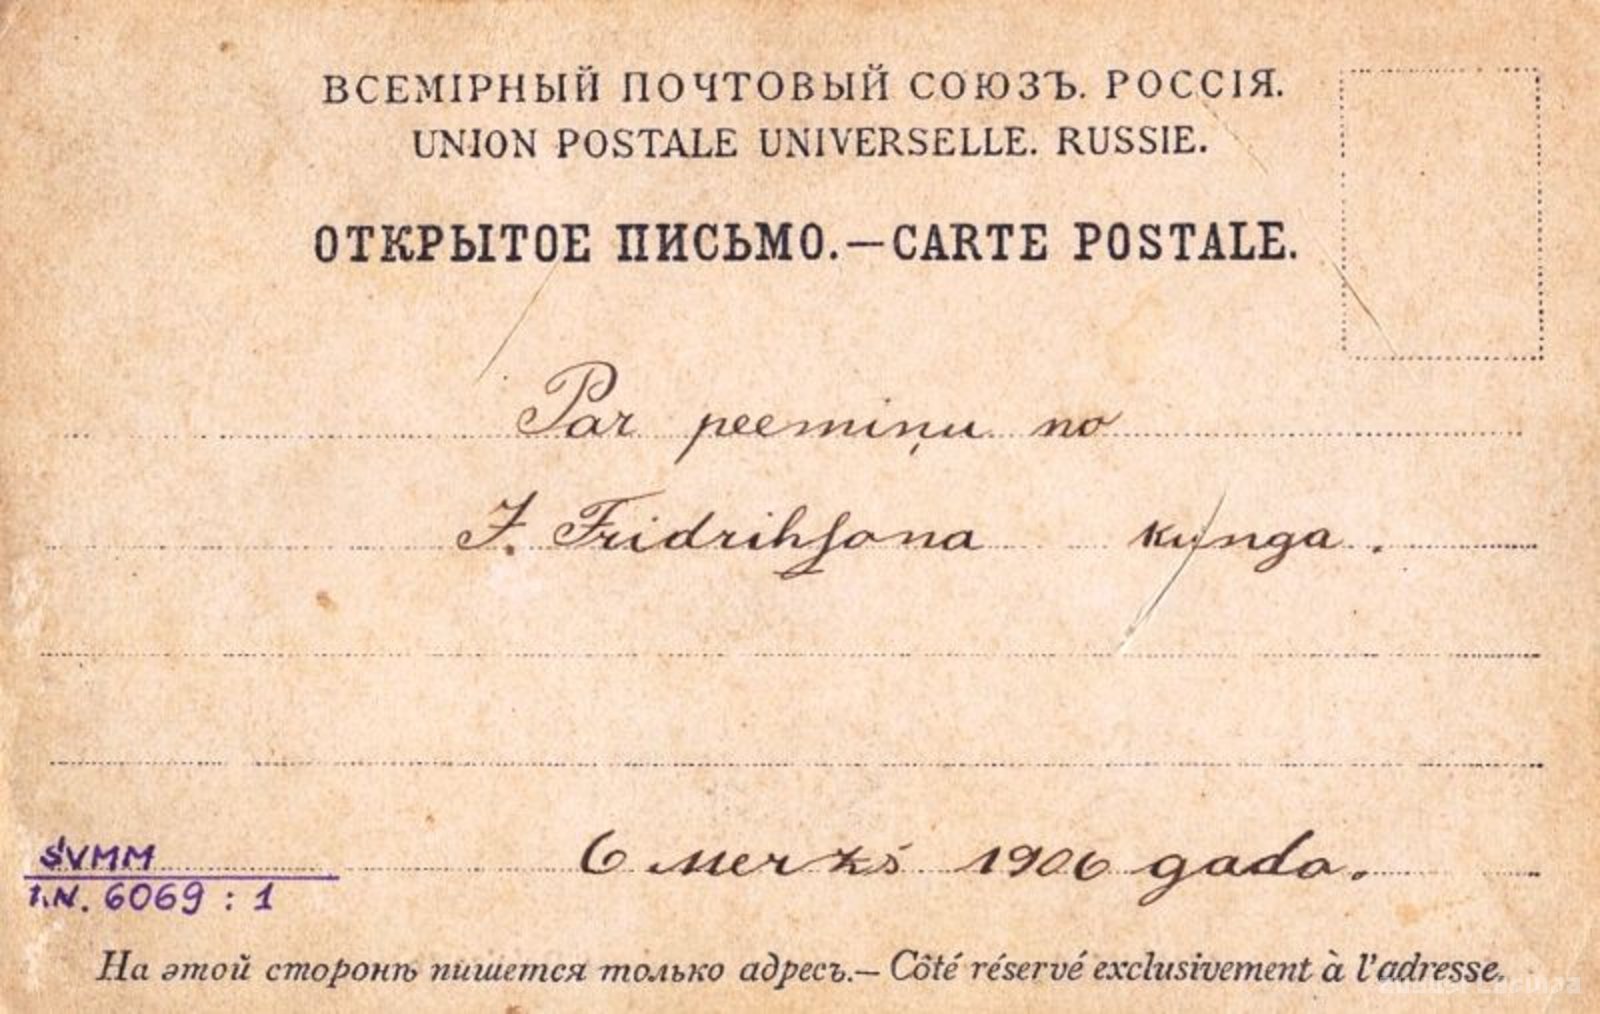 ВСЕМІРНЫЙ ПОЧТОВЫЙ СОЮЗЪ. РОССІЯ.
UNION POSTALE UNIVERSELLE. RUSSIE.
ОТКРЫТОЕ ПИСЬМО.—CARTE POSTALE.
Par peemiņu no
J. Fridrihsona kunga.
6 Merzš 1906 gada.
ŠVMM
I.N. 6069 : 1
На этой сторонѣ пишется только адресъ.— Côté réservé exclusivement à l'adresse.